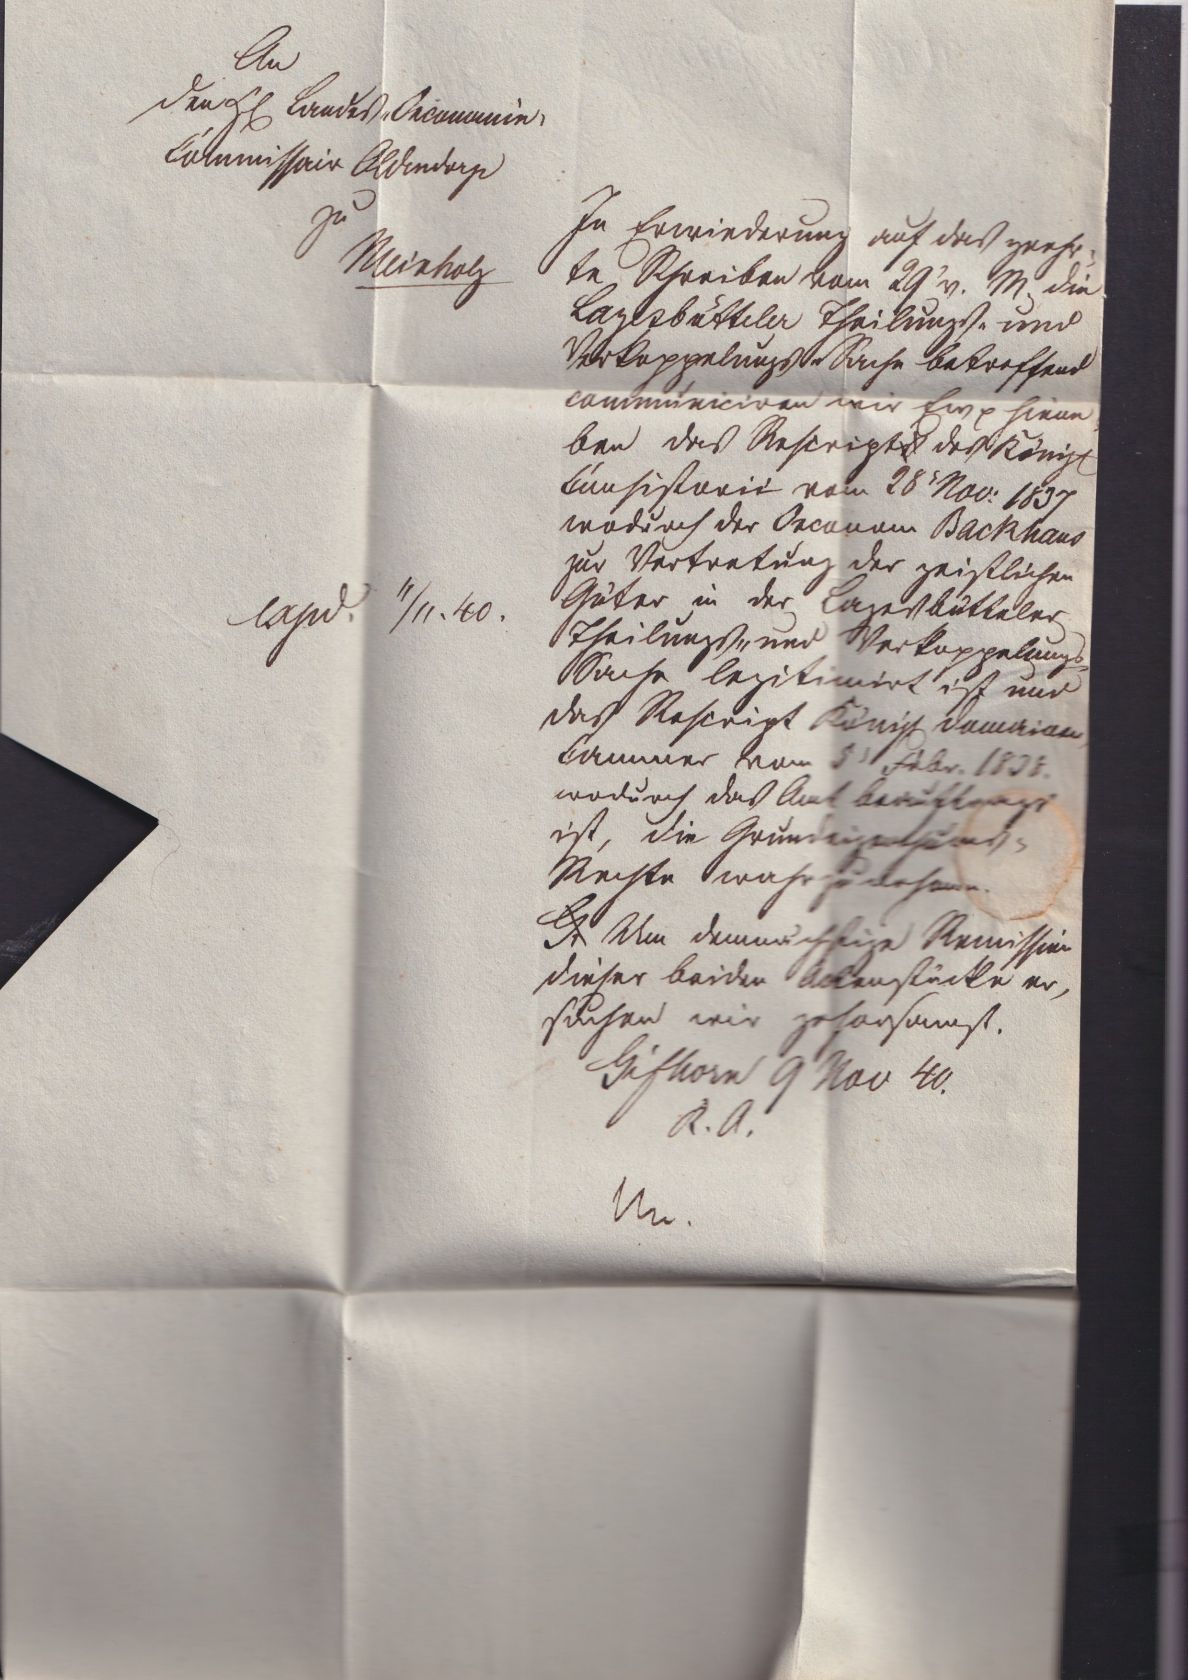 An
den H. Landes-Oeconomie-
Commissair Oldendorp
zu
Meinholz
In Erwiederung auf das geehr-
te Schreiben vom 29' v. M. die
Lagesbütteler Theilungs- und
Verkoppelungs-Sache betreffend
communiciren wir Ew p hiene-
ben das Rescript des Königl
Consistorii vom 28' Nov: 1837
wodurch der Oeconom Backhaus
zur Vertretung der geistlichen
Güter in der Lagesbütteler
Theilungs- und Verkoppelungs-
Sache legitimirt ist und
das Rescript Königl Domainen
Cammer vom 5' Febr. 1838.
wodurch das Amt beauftragt
ist, die Grundeigenthums-
Rechte wahrzunehmen.
Um demnächstige Remission
dieser beiden Actenstücke er-
suchen wir gehorsamst.
Gifhorn 9 Nov 40.
K. A.
expd. 11/11. 40.